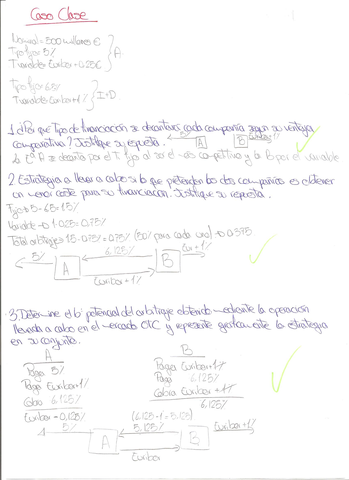 Caso Clase
Nominal = 300 millones €
Tipo fijo = 5%
Variable = Euribor + 0.25€
} A
Tipo fijo = 6.5%
Variable = Euribor + 1%
} I+D
1. ¿Por que tipo de financiación se decantará cada compañía según su ventaja
comparativa? Justifique su respuesta.
A
B
Euribor + 1%
la Cª A se decanta por el T. Fijo al ser el competitivo y la B por el variable
2. Estrategia a llevar a cabo si lo que pretenden las dos compañías es obtener
un menor coste para su financiación. Justifique su respuesta.
Fijo = 5 - 6.5 = 1.5%
Variable = 1 - 0.25 = 0.75%
Total arbitraje = 1.5 - 0.75% = 0.75% (50% para cada una) → 0.375
5%
A
6.125%
Euribor + 1%
B
Eur + 1%
3. Determine el bº potencial del arbitraje obtenido mediante la operación
llevada a cabo en el mercado OTC y represente graficamente la estrategia
en su conjunto.
A
Paga 5%
Paga Euribor + 1%
Cobra 6.125%
Euribor - 0.125%
B
Paga Euribor + 1%
Paga 6.125%
Cobra Euribor + 1%
6.125%
(6.125 - 1 = 5.125)
5%
A
5.125%
Euribor
B
Euribor + 1%